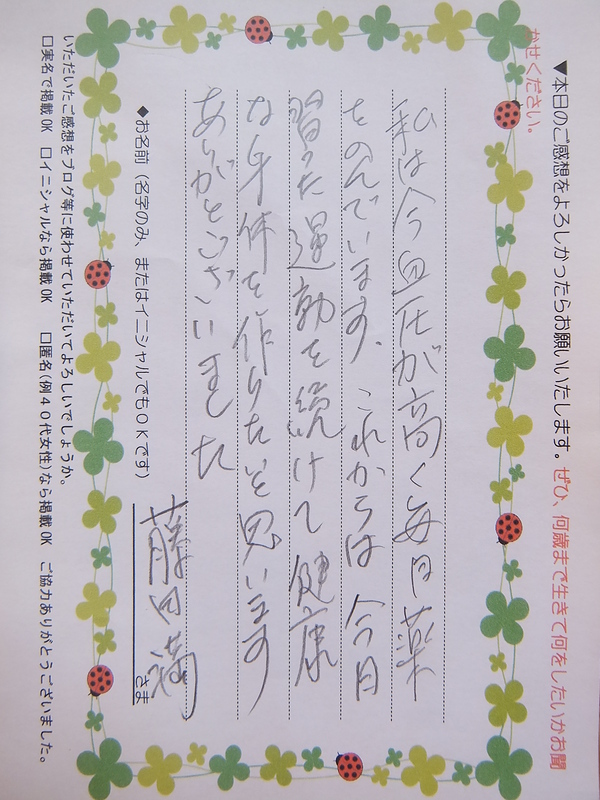 ▼本日のご感想をよろしかったらお願いいたします。ぜひ、何歳まで生きて何をしたいかお聞
かせください。
私は今血圧が高く毎日薬
をのんでいます、これからは今日
習った運動を続けて健康
な身体を作りたいと思います
ありがとうございました
◆お名前（名字のみ、またはイニシャルでもOKです）藤田満さま
いただいたご感想をブログ等に使わせていただいてよろしいでしょうか。
□実名で掲載OK □イニシャルなら掲載OK □匿名(例40代女性)なら掲載OK ご協力ありがとうございました。